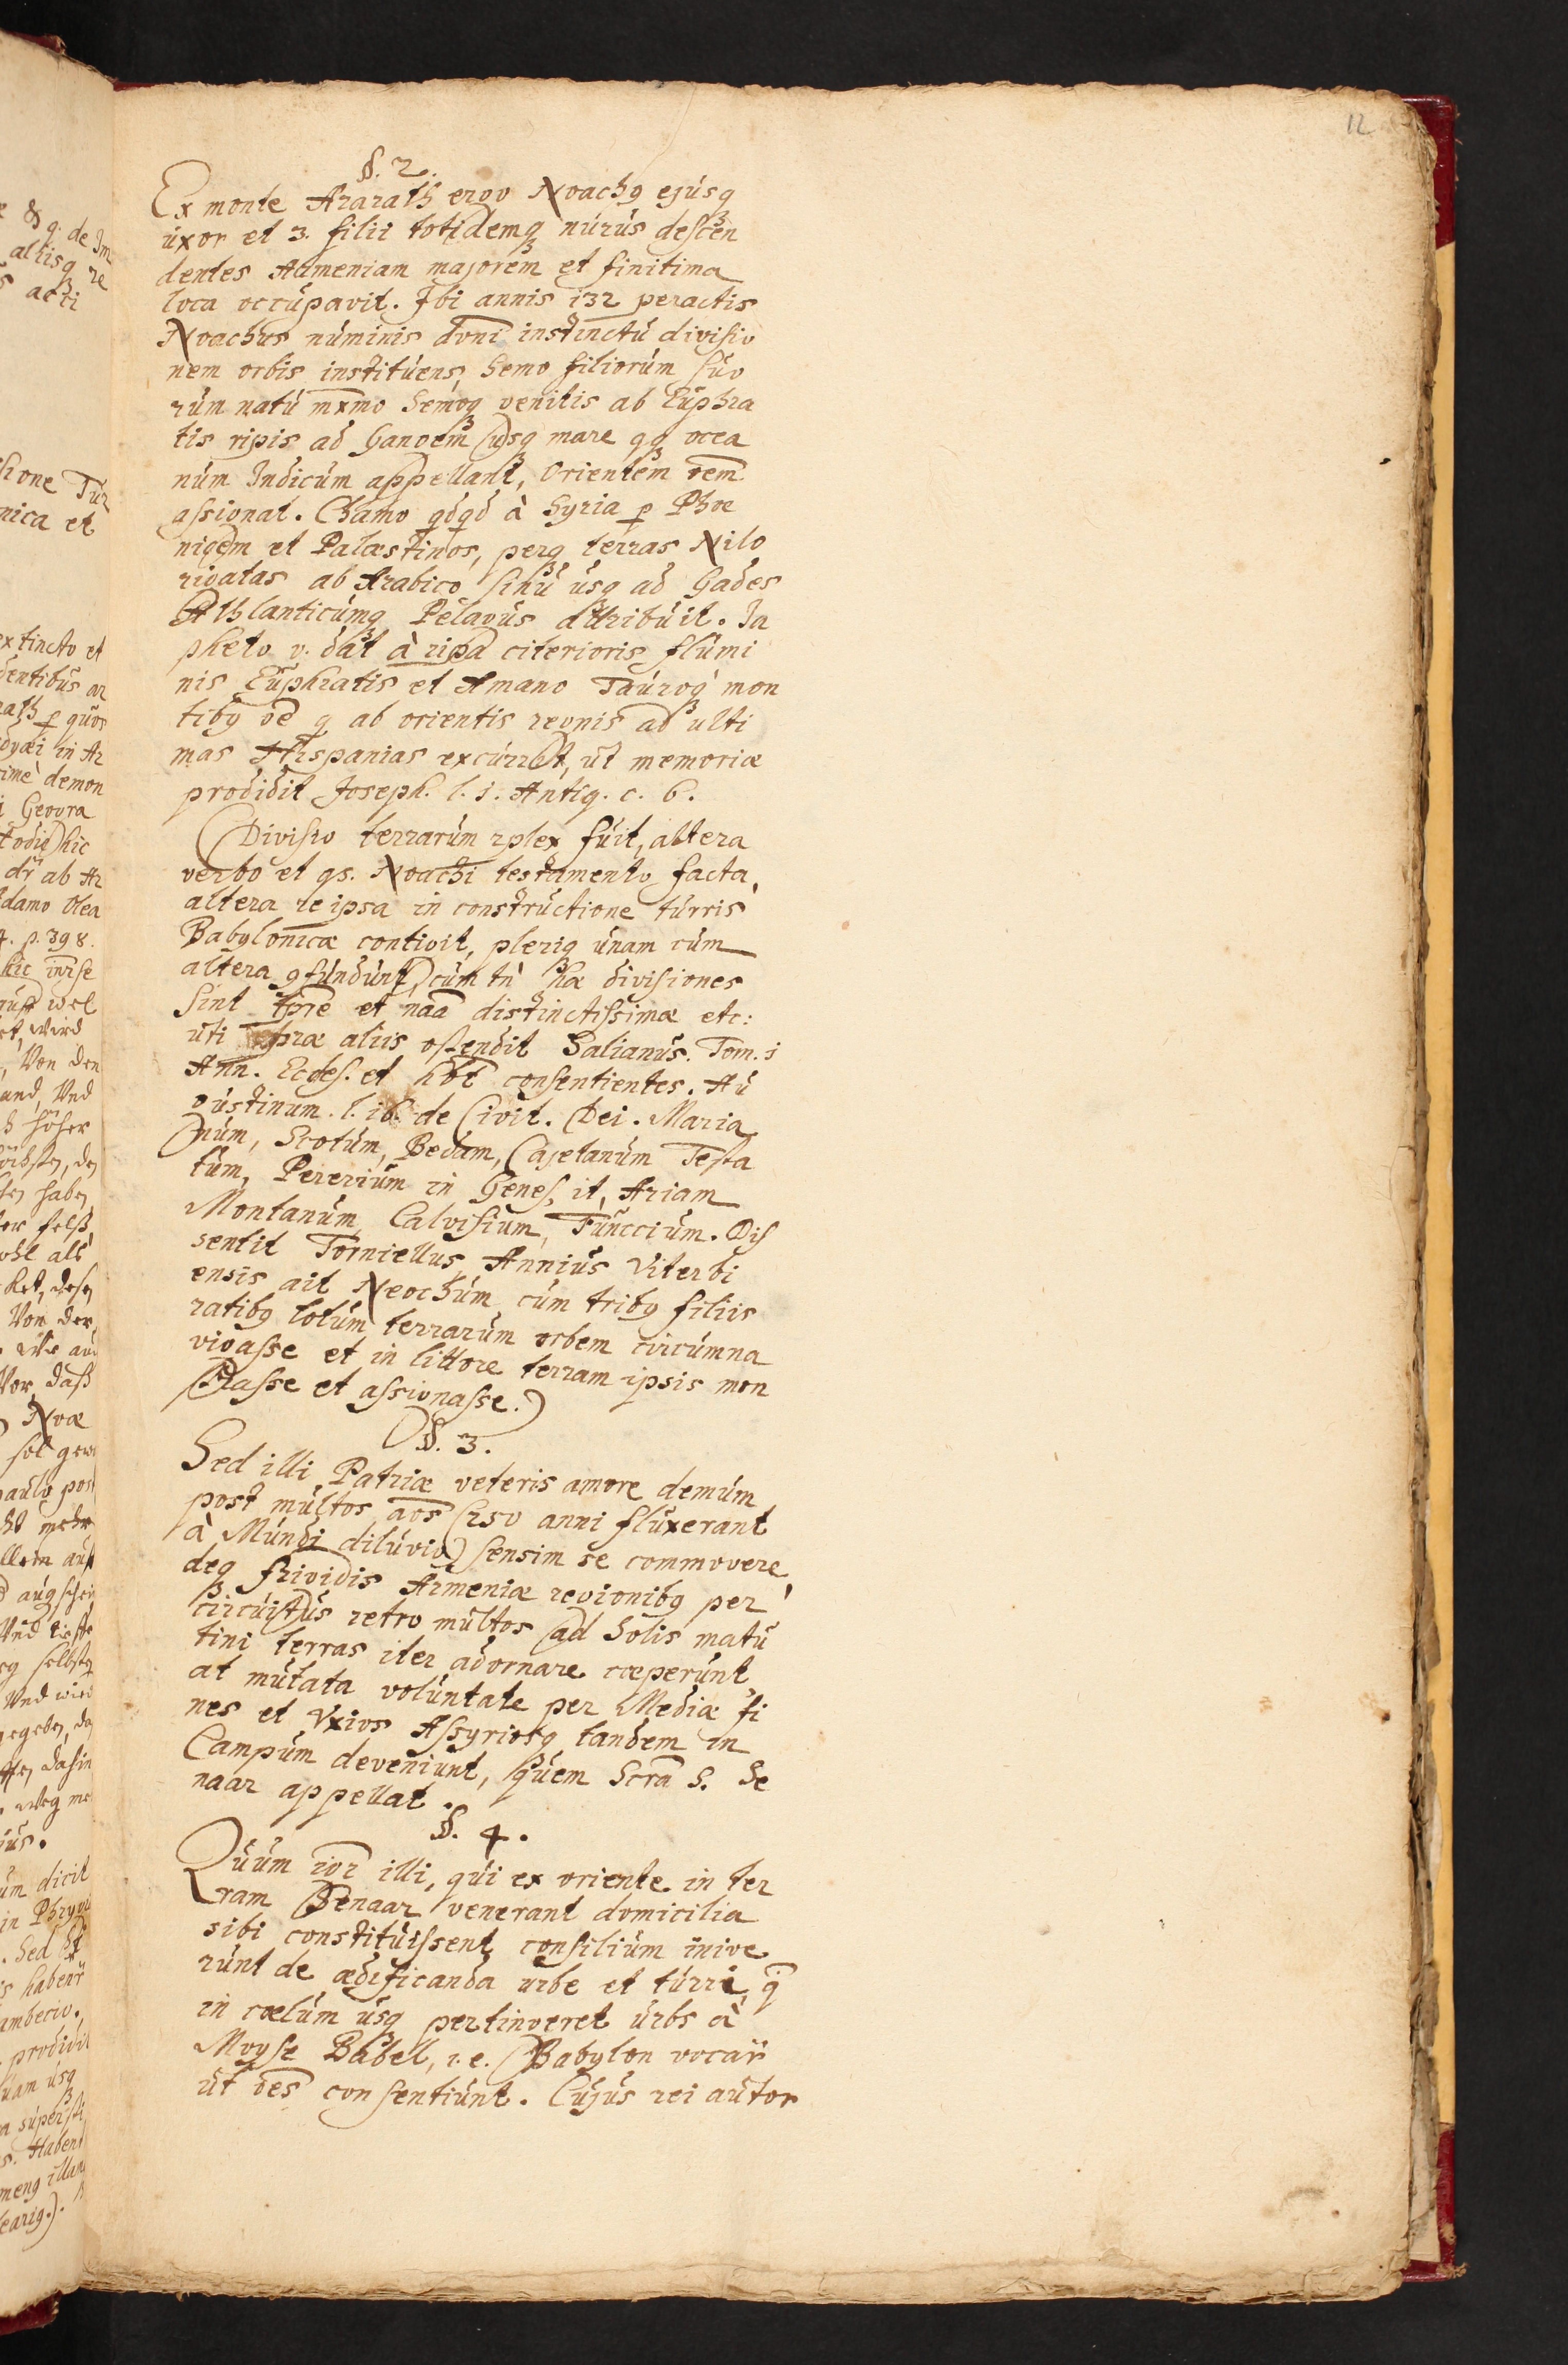 12
§. 2.
Ex monte Ararath ergo Noach9 ejúsq3
úxor et 3. filii totidemq3 núrús descen
dentes Armeniam majorem et finitima
loca occúpavit. Ibi annis 132 peractis
Noachus núminis dvni instinctú divisio
nem orbis instituens, Semo filiorúm súo
rúm natú mxmo Semoq3 genitis ab Eúphra
tis ripis ad Gangem usq3 mare qq3 ocea
núm Indicúm appellant, Orientem oem
assignat. Chamo qdqd à Syria p Phoe
nicem et Palæstinos, perq3 terras Nilo
rigatas ab Arabico sinú úsq3 ad Gades
Athlanticúmq3 Pelagús attribúit. Ja
pheto v. dat à ripa citerioris flúmi
nis Eúphratis et Amano Taúroq3 mon
tib9 oe q ab orientis regnis ad ulti
mas Hispanias excúrrit, út memoriæ
prodidit Joseph. l. 1. Antiq. c. 6.
(Divisio terrarúm 2plex fúit, altera
verbo et qs. Noachi testamento facta,
altera re ipsa in constrúctione túrris
Babylonicæ contigit, pleriq3 únam cúm
altera 9fúndúnt, cúm tn hæ divisiones
sint tpre et naa distinctissimæ etc:
uti præ aliis ostendit Salianús. Tom. 1
Ann. Eccles. et hbt consentientes. Aú
gústinum. l. 16. de Civit. Dei. Maria
núm, Scotúm, Bedam, Cajetanúm Testa
túm, Pereriúm in Genes, it, Ariam
Montanúm, Calvisium, Fúncciúm. Dis
sentit Torniellus, Anniús Viterbi
ensis ait Neochúm cúm trib9 filiis
ratib9 totúm terrarúm orbem circúmna
vigasse et in littore terram ipsis mon
strasse et assignasse.)
§. 3.
Sed illi Patriæ veteris amore demúm
post múltos aos (150 anni flúxerant
à Múndi dilúvio) sensim se commovere,
deq3 frigidis Armeniæ regionib9 per
circúitús retro múltos ad Solis matú
tini terras iter adornare cœperúnt,
at mútata volúntate per Mediæ fi
nes et Vxios Assyriosq3 tandem in
Campúm deveniunt, qúem Scra S. Se
naar appellat.
§. 4.
Qúúm igr illi, qúi ex oriente in ter
ram Senaar venerant domicilia
sibi constitúissent, consiliúm inive
rúnt de ædificanda urbe et túrri, q
in cœlúm úsq3 pertingeret úrbs à
Moyse Babel, i.e. Babylon vocar
út oes consentiúnt. Cújús rei aútor